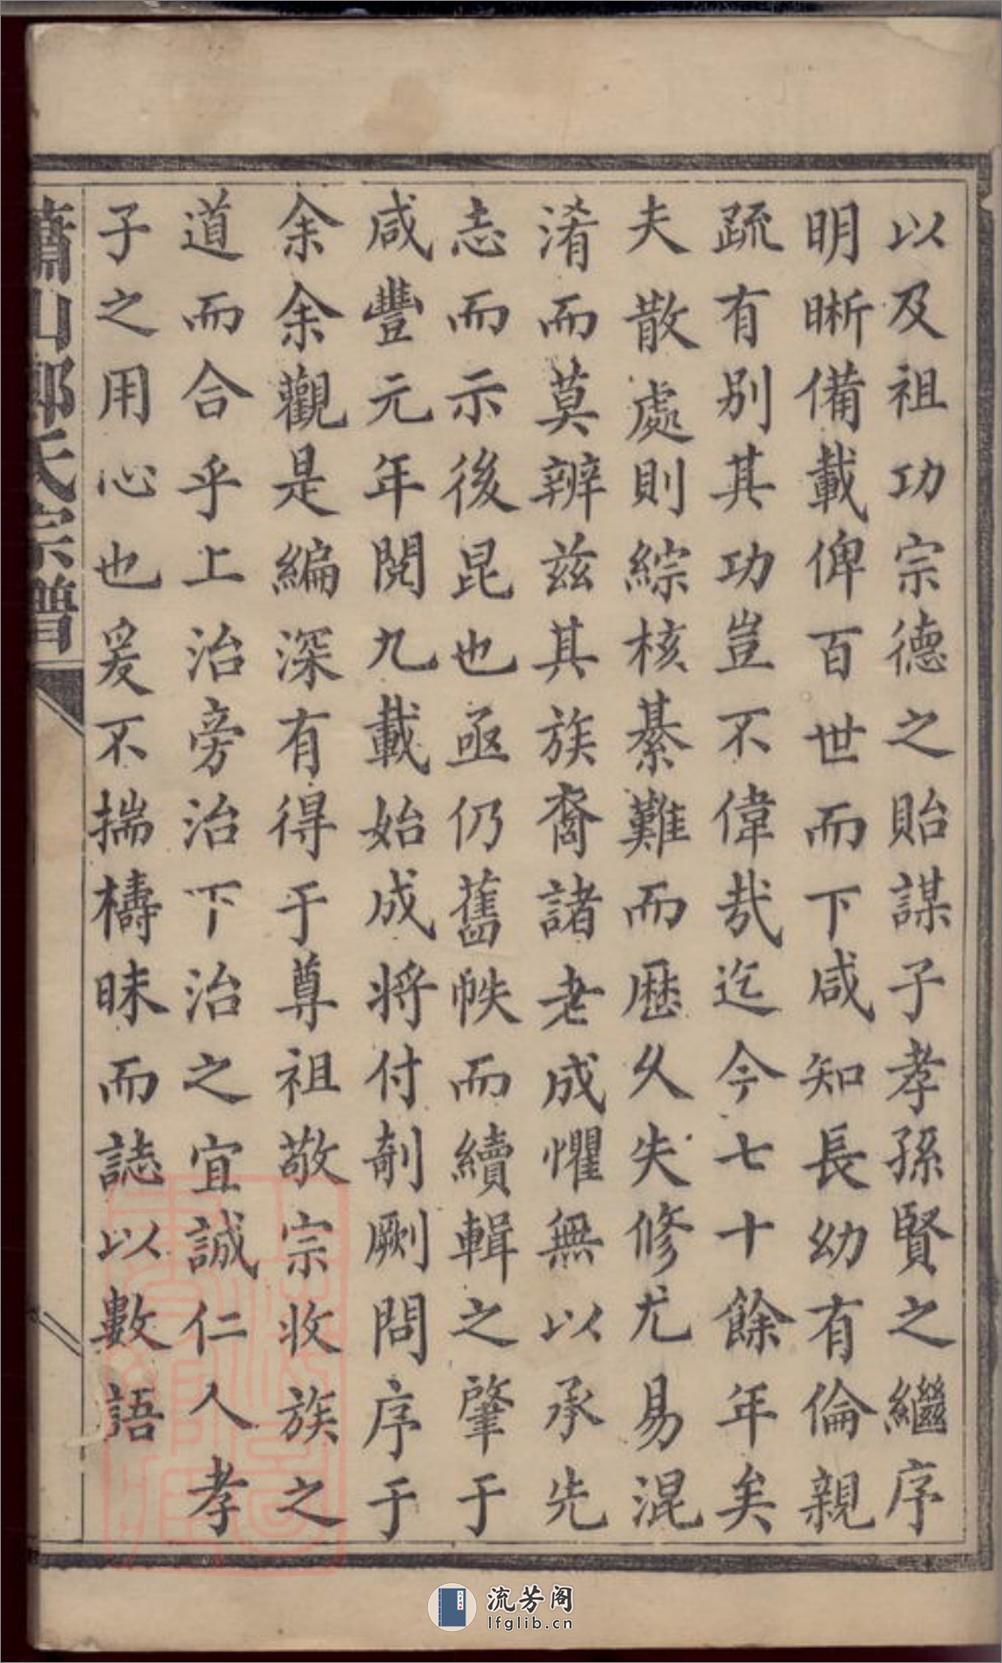 以及祖功宗德之貽謀子孝孫賢之繼序
明晰備載俾百世而下咸知長幼有倫親
疏有別其功豈不偉哉迄今七十餘年矣
夫散處則綜核綦難而歷久失修尤易混
淆而莫辨兹其族裔諸老成懼無以承先
志而示後昆也亟仍舊帙而續輯之肇于
咸豐元年閱九載始成将付剞劂問序于
余余觀是編深有得于尊祖敬宗收族之
道而合乎上治旁治下治之宜誠仁人孝
子之用心也爰不揣檮昧而誌以數語
蕭山郭氏宗譜
流芳阁
lfglib.cn